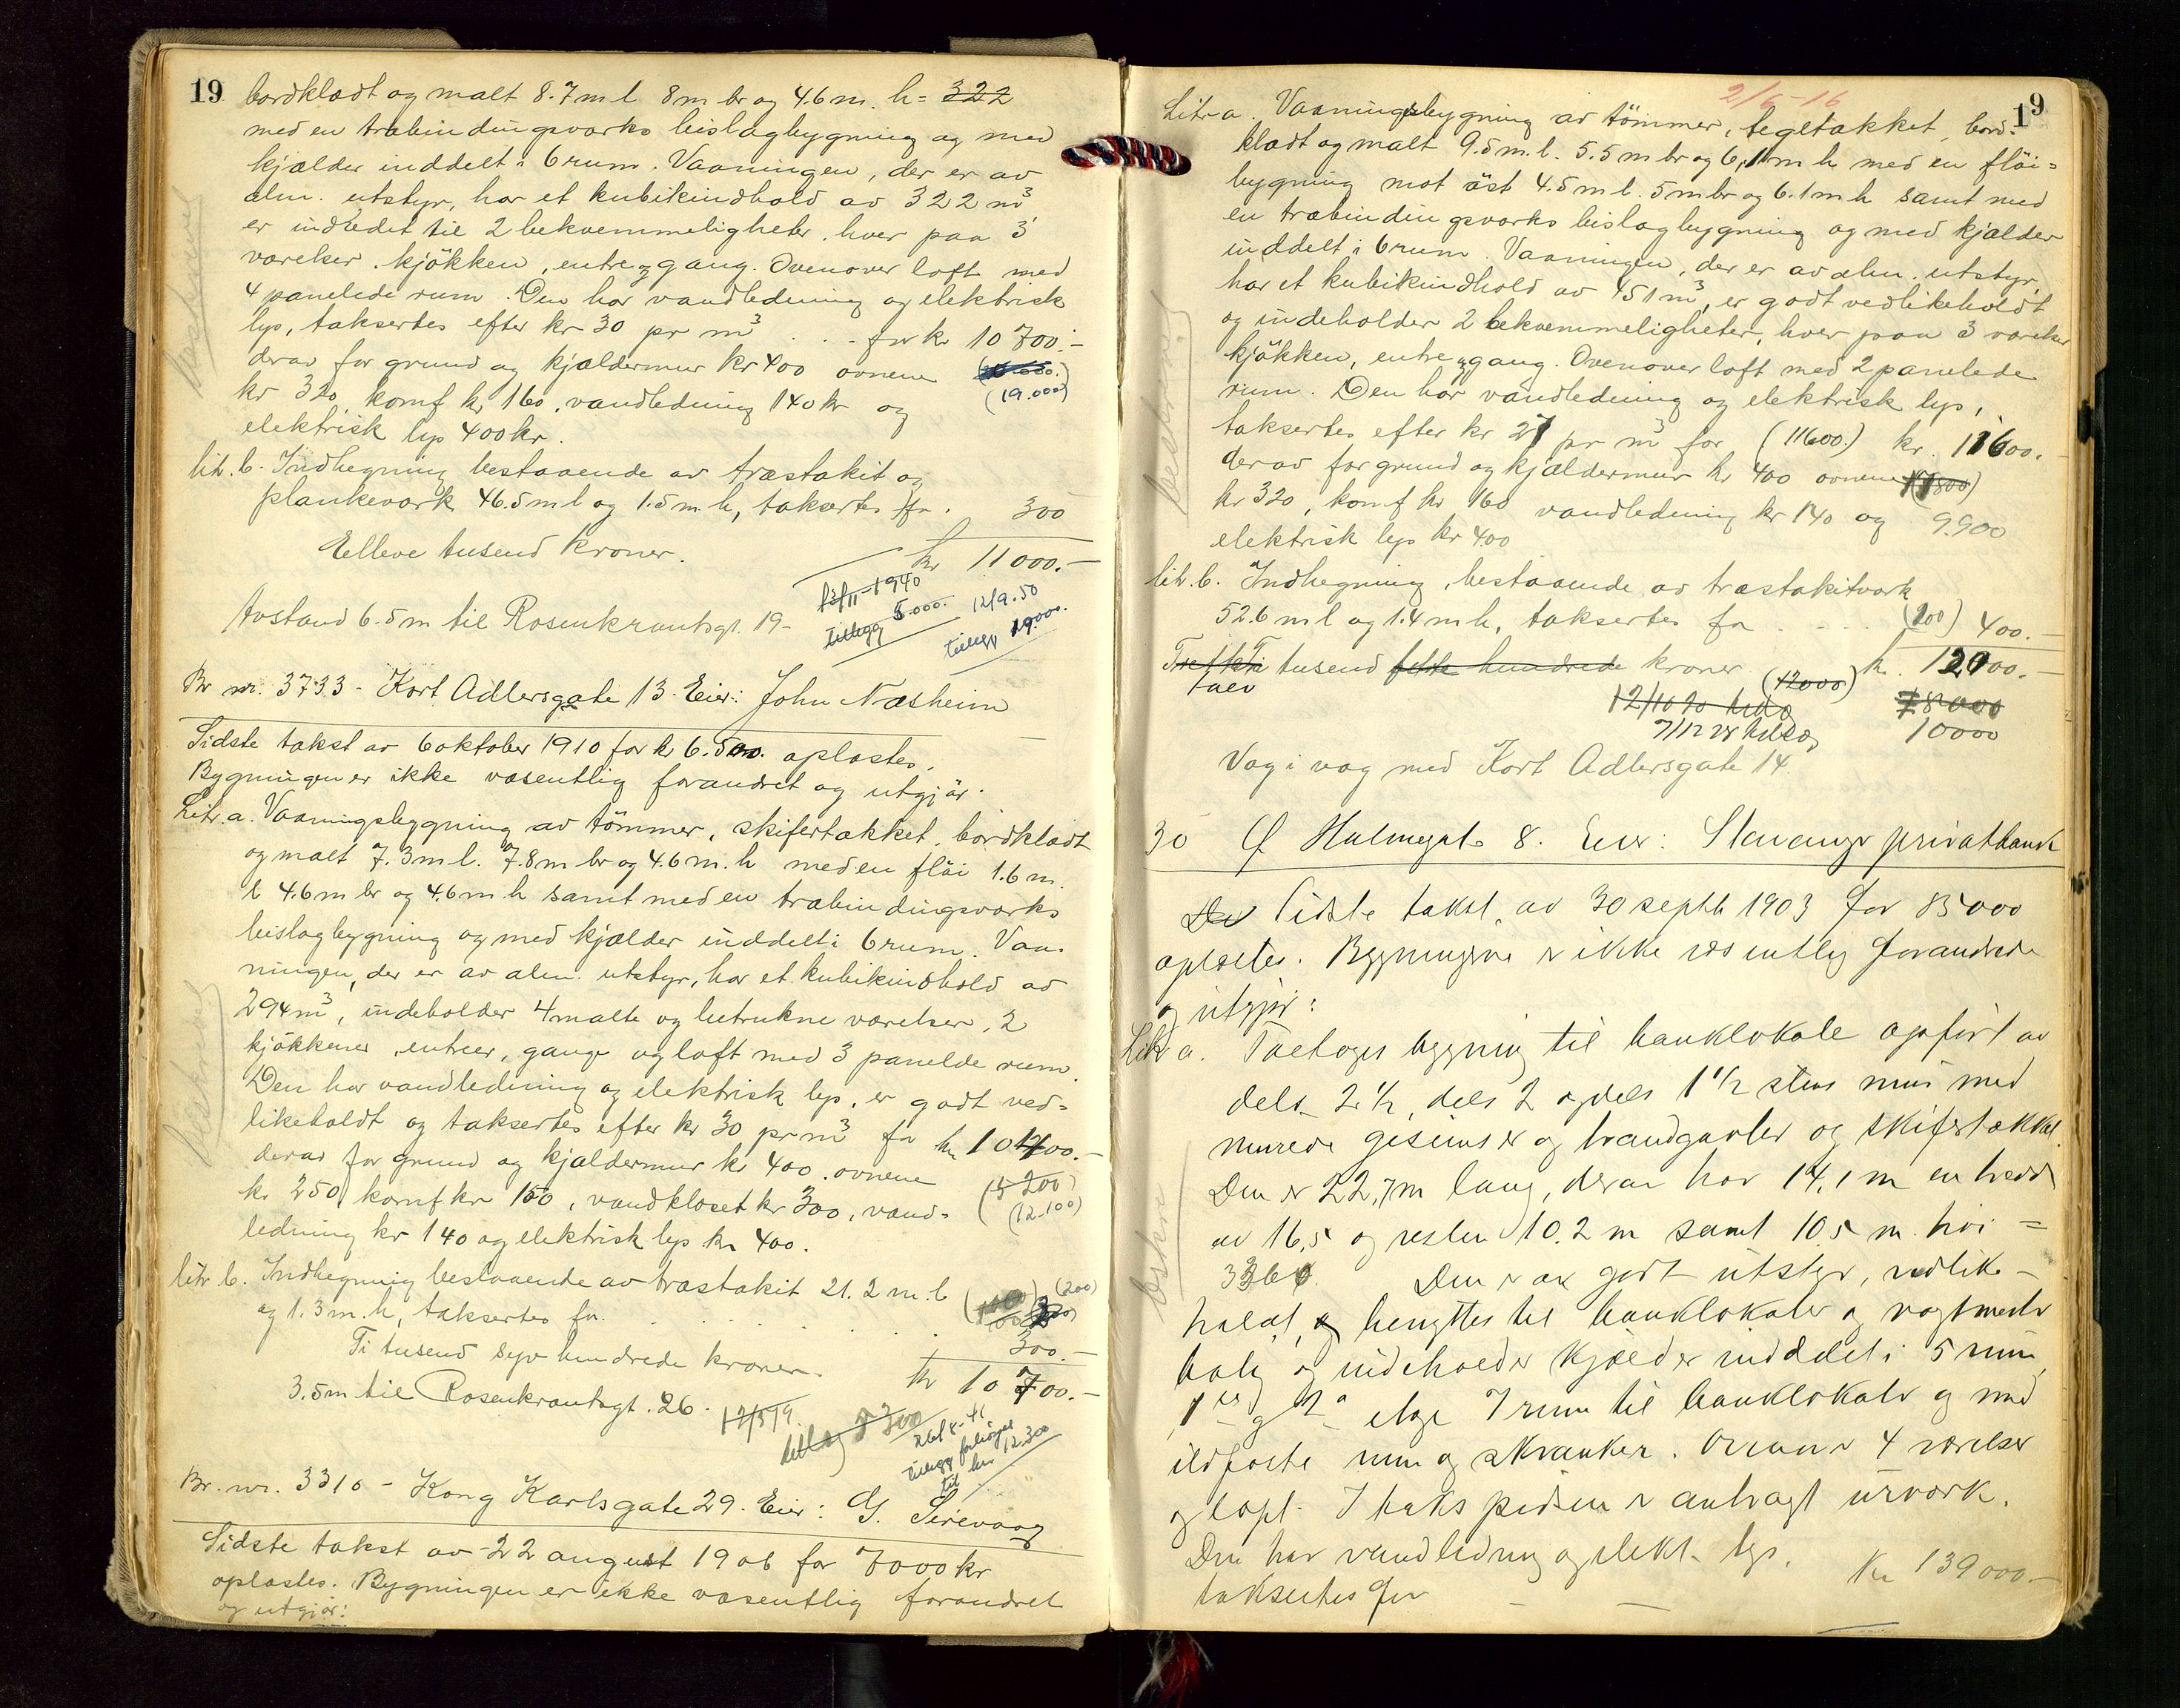 19
bordklædt og malt 8.7 m l 8 m br og 4.6 m. h = 322
med en træbindingsværks bislagbygning og med
kjælder inddelt i 6 rum. Vaaningen, der er av
alm. utstyr, har et kubikindhold av 322 m³
er indredet til 2 bekvemmeligheter, hver paa 3
værelser, kjökken, entre og gang. Ovenover loft med
4 panelede rum. Den har vandledning og elektrisk
lys, taksertes efter kr 30 pr m³ . . - for kr 10700.-
derav for grund og kjældermur kr 400 ovnene
(19.000)
kr 320, komf kr 160, vandledning 140 kr og
elektrisk lys 400 kr.
litr. b. Indhegning bestaaende av træstakit og
plankeværk 46.5 m l og 1.5 m. h, taksertes for . 300
Elleve tusend kroner. kr 11000.-
13/11-1940
tillegg 5.000.
12/9.50
tillegg 19000.
Avstand 6.5 m til Rosenkrantsgt. 19-
Br nr. 3733 - Kort Adlersgate 13. Eier: John Næsheim
Sidste takst av 6 oktober 1910 for kr 6.500. oplæstes.
Bygningen er ikke væsentlig forandret og utgjör.
Litr. a. Vaaningsbygning av tömmer, skifertækket, bordklædt
og malt 7.3 m l. 7.8 m br og 4.6 m. h med en flöi 1.6 m.
l 4.6 m br og 4.6 m h samt med en træbindingsværks
bislagbygning og med kjælder inddelt i 6 rum. Vaa-
ningen, der er av alm. utstyr, har et kubikindhold av
294 m³, indeholder 4 malte og betrukne værelser, 2
kjökkener, entreer, gange og loft med 3 panelde rum.
Den har vandledning og elektrisk lys, er godt ved-
likeholdt og taksertes efter kr 30 pr m³ for kr 10400.-
derav for grund og kjældermur kr 400, ovnene
(12.100)
kr 250, komf kr 160, vandkloset kr 300, vand-
ledning kr 140 og elektrisk lys kr 400.
litr b. Indhegning bestaaende av træstakit 21.2 m. l (200)
og 1.3 m. h, taksertes for . . . . . . . 300.-
Ti tusend syv hundrede kroner. kr 10700.-
3.5 m til Rosenkrantsgt. 26.
12/5 19.
tillæg 5300
26/8-41
tillegg forhöyet
til kr 12.300
Br. nr. 3316 - Kong Karlsgate 29. Eier: G. Sirevaag
Sidste takst av 22 august 1906 for 7000 kr
oplæstes. Bygningen er ikke væsentlig forandret
og utgjör:
2/6-16
19
Litr a. Vaaningsbygning av tömmer, tegltækket, bord-
klædt og malt 9.5 m. l. 5.5 m br og 6,1 m h med en flöi=
bygning mot öst 4.5 m l. 5 m br og 6.1 m h samt med
en træbindingsværks bislagbygning og med kjælder
inddelt i 6 rum. Vaaningen, der er av alm. utstyr,
har et kubikindhold av 451 m³, er godt vedlikeholdt
og indeholder 2 bekvemmeligheter, hver paa 3 værelser
kjökken, entre og gang. Ovenover loft med 2 panelede
rum. Den har vandledning og elektrisk lys,
taksertes efter kr 27 pr m³ for (11600.) kr. 11600.-
derav for grund og kjældermur kr 400 ovnene
kr 320, komf kr 160 vandledning kr 140 og 9.900
elektrisk lys kr 400
litr. b. Indhegning, bestaaende av træstakitværk
52.6 m l og 1.4 m h, taksertes for . . . . (200) 400.-
tusend hundrede kroner (12000) kr. 12000.-
tolv
7/12 28
10000
Væg i væg med Kort Adlersgate 14.
30 Ø Holmegate 8. Eier: Stavanger privatbank
Sidste takst av 30 septbr 1903 for 85000
oplæstes. Bygningene er ikke væsentlig forandrede
og utgjör:
Litr a. Toetages bygning til banklokale opfört av
dels 2 1/2, dels 2 og dels 1 1/2 stens mur med
murede gesimser og brandgavler og skifertækket.
Den er 22,7 m lang, derav har 14,1 m en bredde
av 16,5 og resten 10.2 m samt 10,5 m. höi =
Den er av godt utstyr, vedlike-
holdt, og benyttes til banklokaler og vagtmester
bolig og indeholder kjælder inddelt i 5 rum,
1ste og 2den etage 7 rum til banklokaler og med
ildfaste rum og skranker. Ovenover 4 værelser
og loft. I takspidsen er anbragt urværk.
Den har vandledning og elekt. lys.
taksertes for - - Kr 139000.-